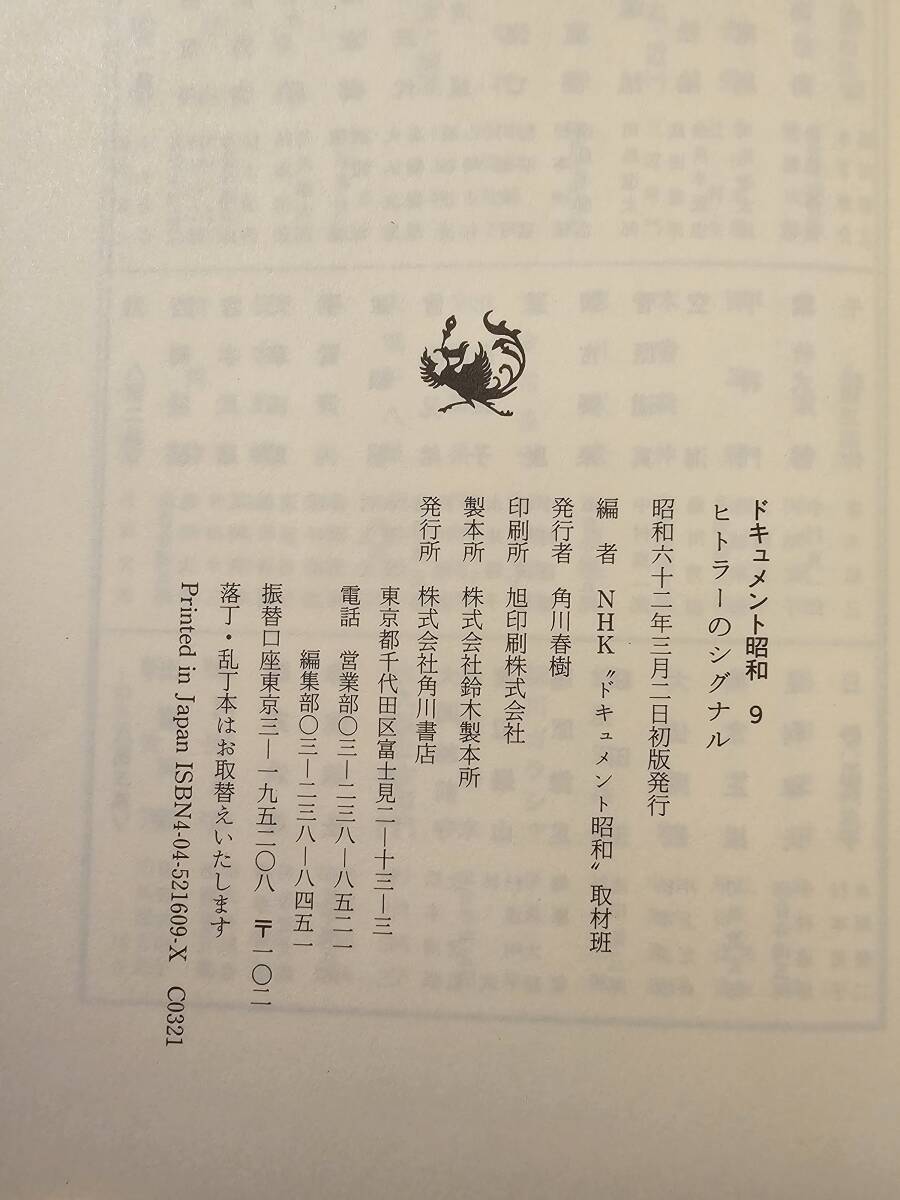 ドキュメント昭和 9
ヒトラーのシグナル
昭和六十二年三月二日初版発行
編 者 NHK〝ドキュメント昭和〟取材班
発行者 角川春樹
印刷所 旭印刷株式会社
製本所 株式会社鈴木製本所
発行所 株式会社角川書店
東京都千代田区富士見二―十三―三
電話 営業部〇三―二三八―八五二一
編集部〇三―二三八―八四五一
振替口座東京三―一九五二〇八 〒一〇二
落丁・乱丁本はお取替えいたします
Printed in Japan ISBN4-04-521609-X C0321